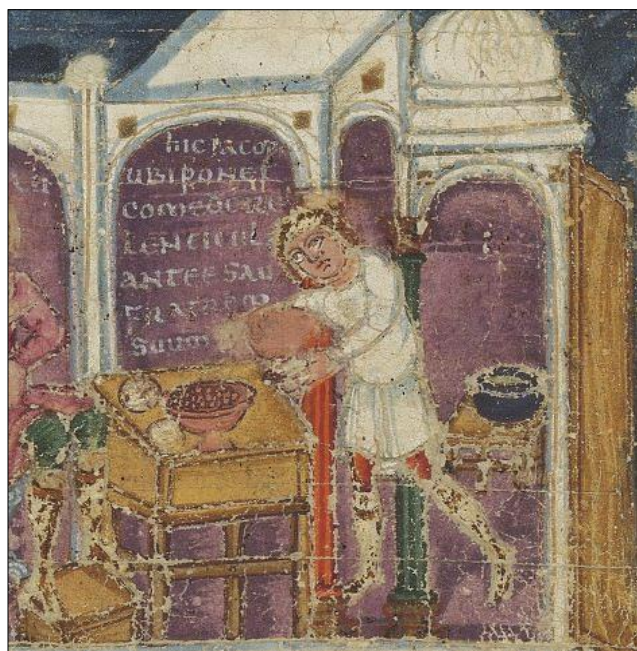 hic iacob
ubi ponet
comedere
lenticul
ante esau
fratrem
suum